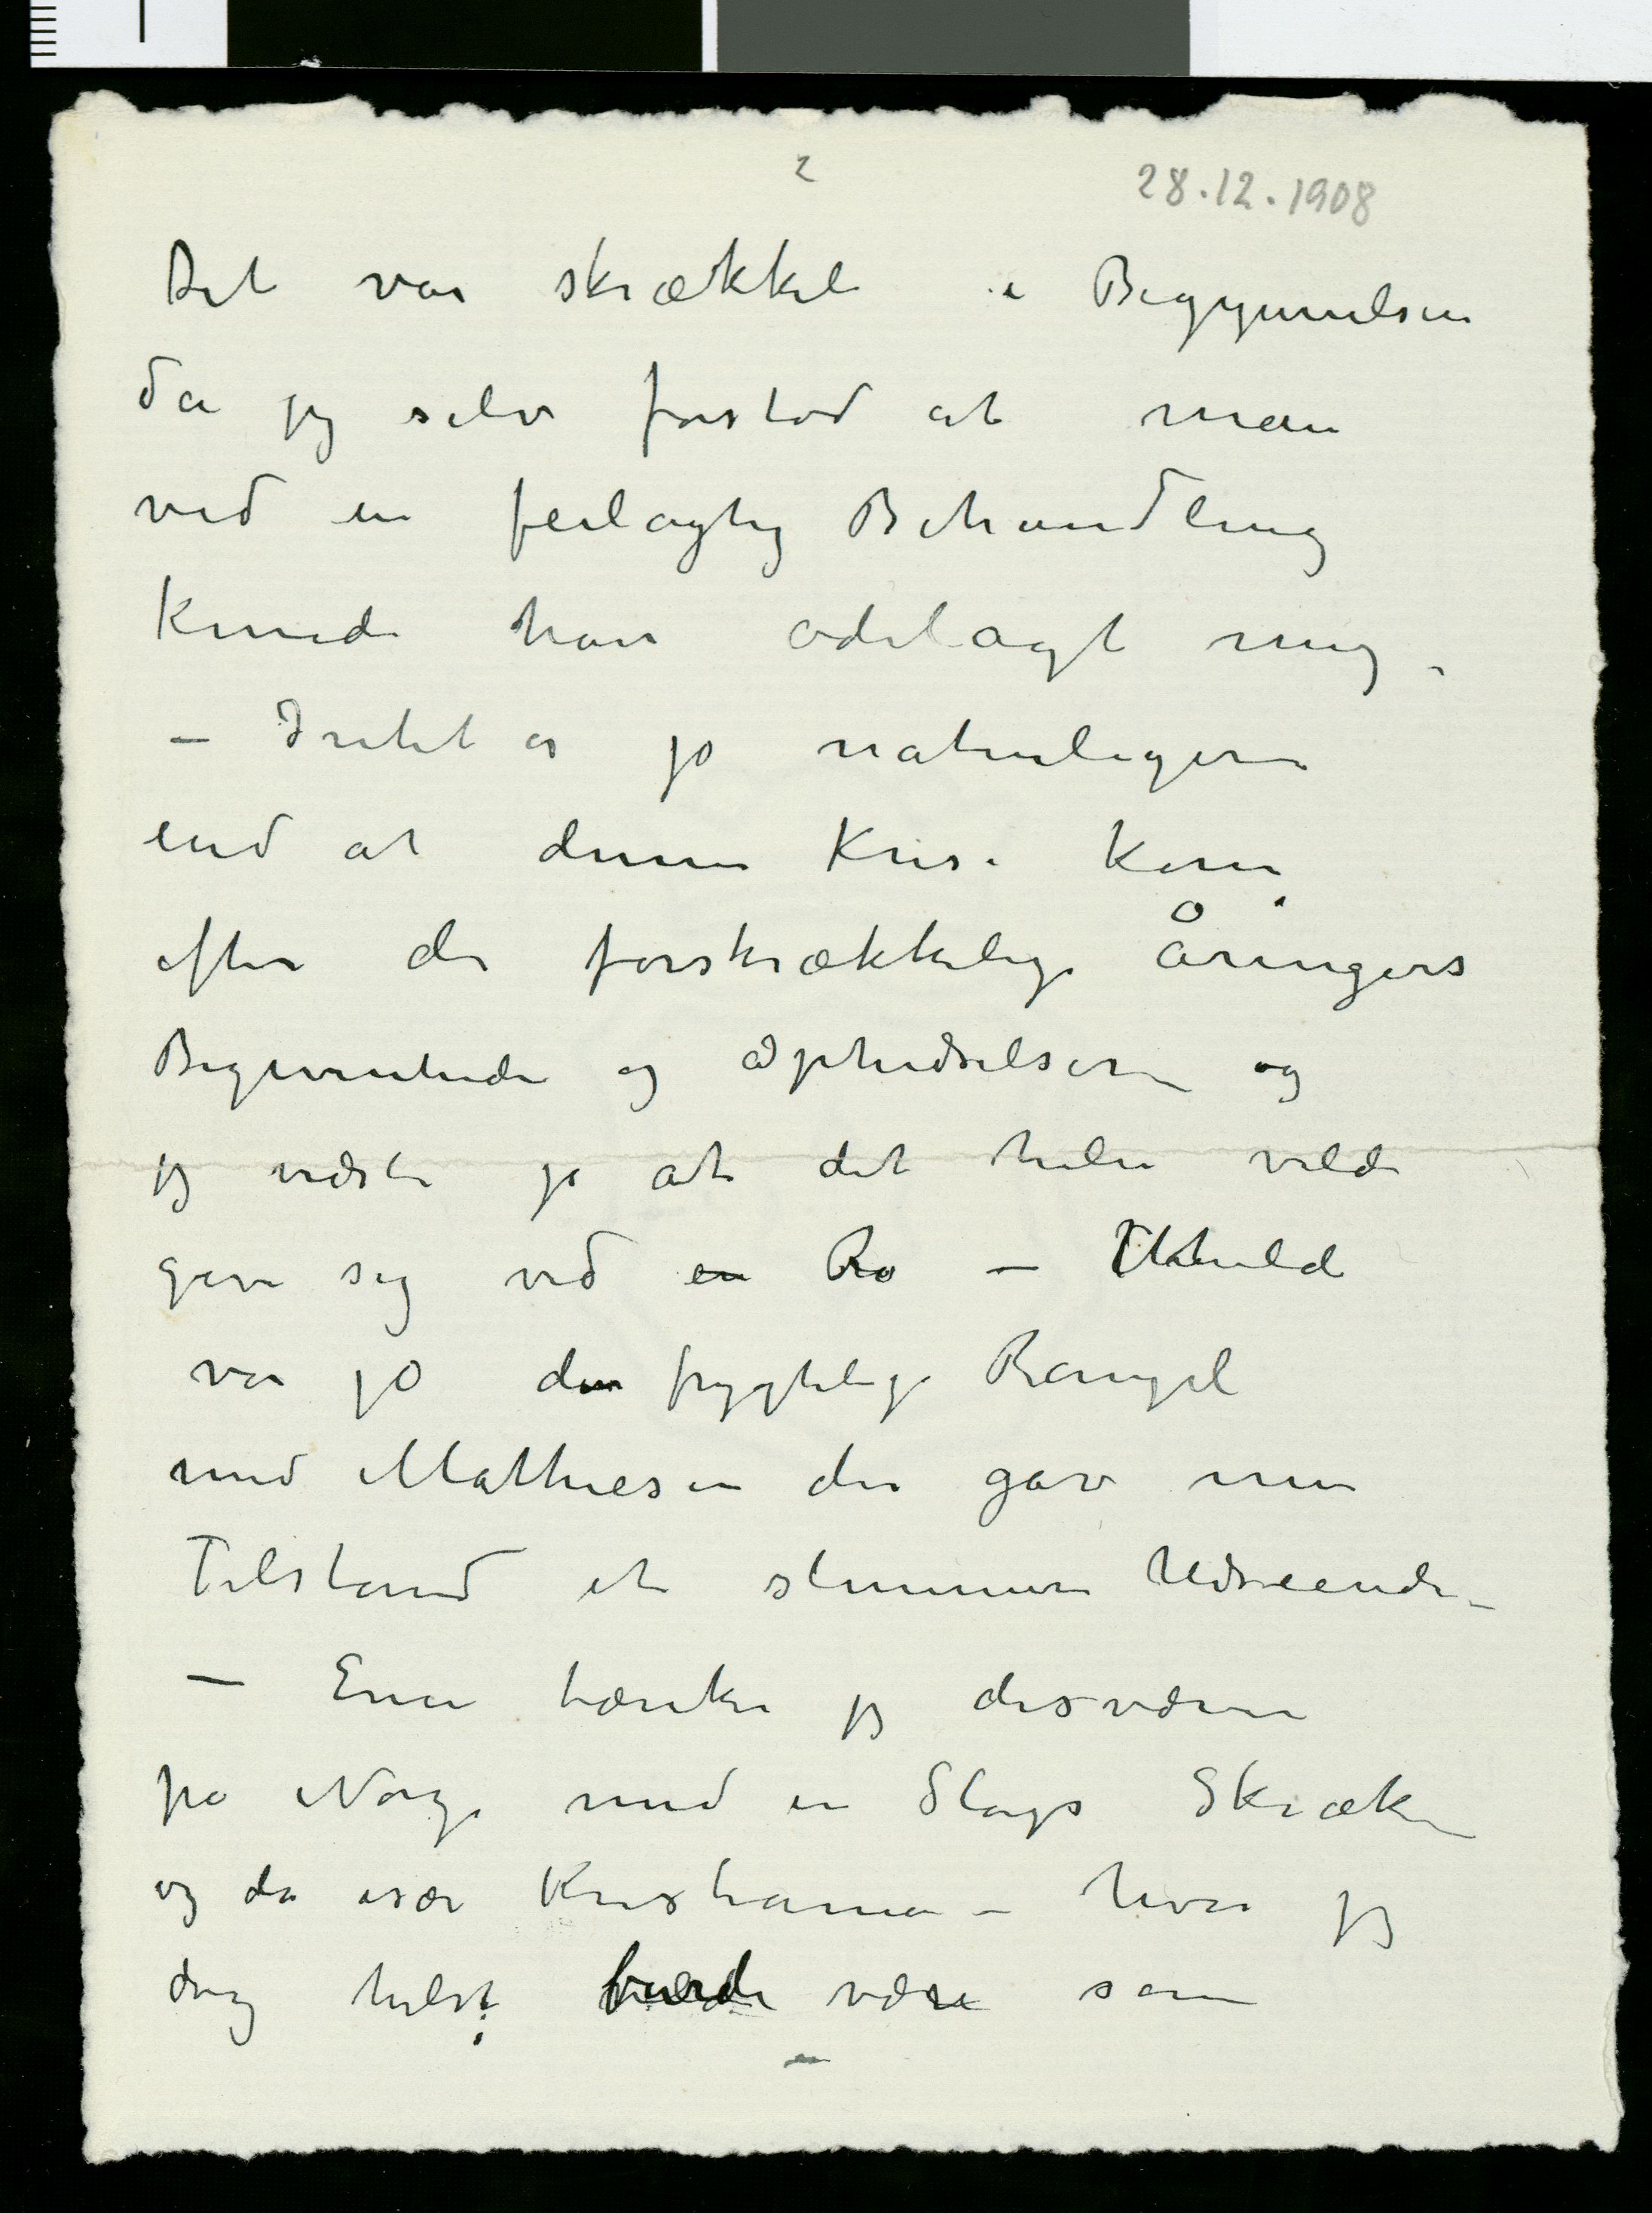 2
28.12.1908
Det var skrækkel i Begyynnelsen
da jeg selv forstod at man
ved en feilagtig Behandling
kunde have ødelagt mig –
– Intet er jo naturligere
end at denne Krise kom
efter de forskrækkelige Åringers
Begivenheder og Ophidselser – og
jeg vidste jo at det hele vilde
give sig ved en Ro –
var jo den frygtelige Rangel
med Mathiesen der gav min
Tilstand et slemmere Udseende –
– Ennu tænker jeg desværre
på Norge med en Slags Skræk –
og da især Kristiania – hvor jeg
dog helst burde være som